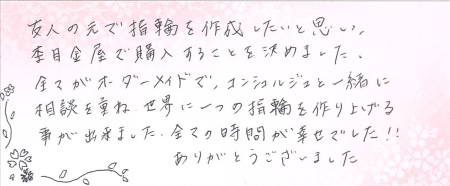 友人の元で指輪を作成したいと思い、
杢目金屋で購入することを決めました。
全てがオーダーメイドで、コンシェルジュと一緒に
相談を重ね、世界に一つの指輪を作り上げる
事が出来ました。全ての時間が幸せでした!!
ありがとうございました